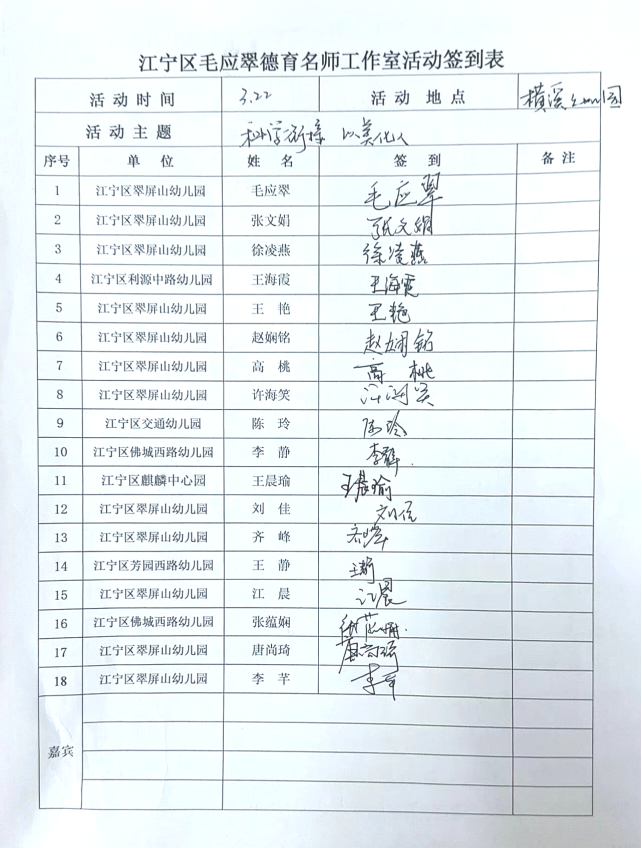 江宁区毛应翠德育名师工作室活动签到表
活动时间 3.22 活动地点 横溪幼儿园
活动主题 科学衔接 以美化人
序号 单位 姓名 签到 备注
1 江宁区翠屏山幼儿园 毛应翠 毛应翠
2 江宁区翠屏山幼儿园 张文娟 张文娟
3 江宁区翠屏山幼儿园 徐凌燕 徐凌燕
4 江宁区利源中路幼儿园 王海霞 王海霞
5 江宁区翠屏山幼儿园 王艳 王艳
6 江宁区翠屏山幼儿园 赵娴铭 赵娴铭
7 江宁区翠屏山幼儿园 高桃 高桃
8 江宁区翠屏山幼儿园 许海笑 许海笑
9 江宁区交通幼儿园 陈玲 陈玲
10 江宁区佛城西路幼儿园 李静 李静
11 江宁区麒麟中心园 王晨瑜 王晨瑜
12 江宁区翠屏山幼儿园 刘佳 刘佳
13 江宁区翠屏山幼儿园 齐峰 齐峰
14 江宁区芳园西路幼儿园 王静 王静
15 江宁区翠屏山幼儿园 江晨 江晨
16 江宁区佛城西路幼儿园 张蕴娴 张蕴娴
17 江宁区翠屏山幼儿园 唐尚琦 唐尚琦
18 江宁区翠屏山幼儿园 李芊 李芊
嘉宾